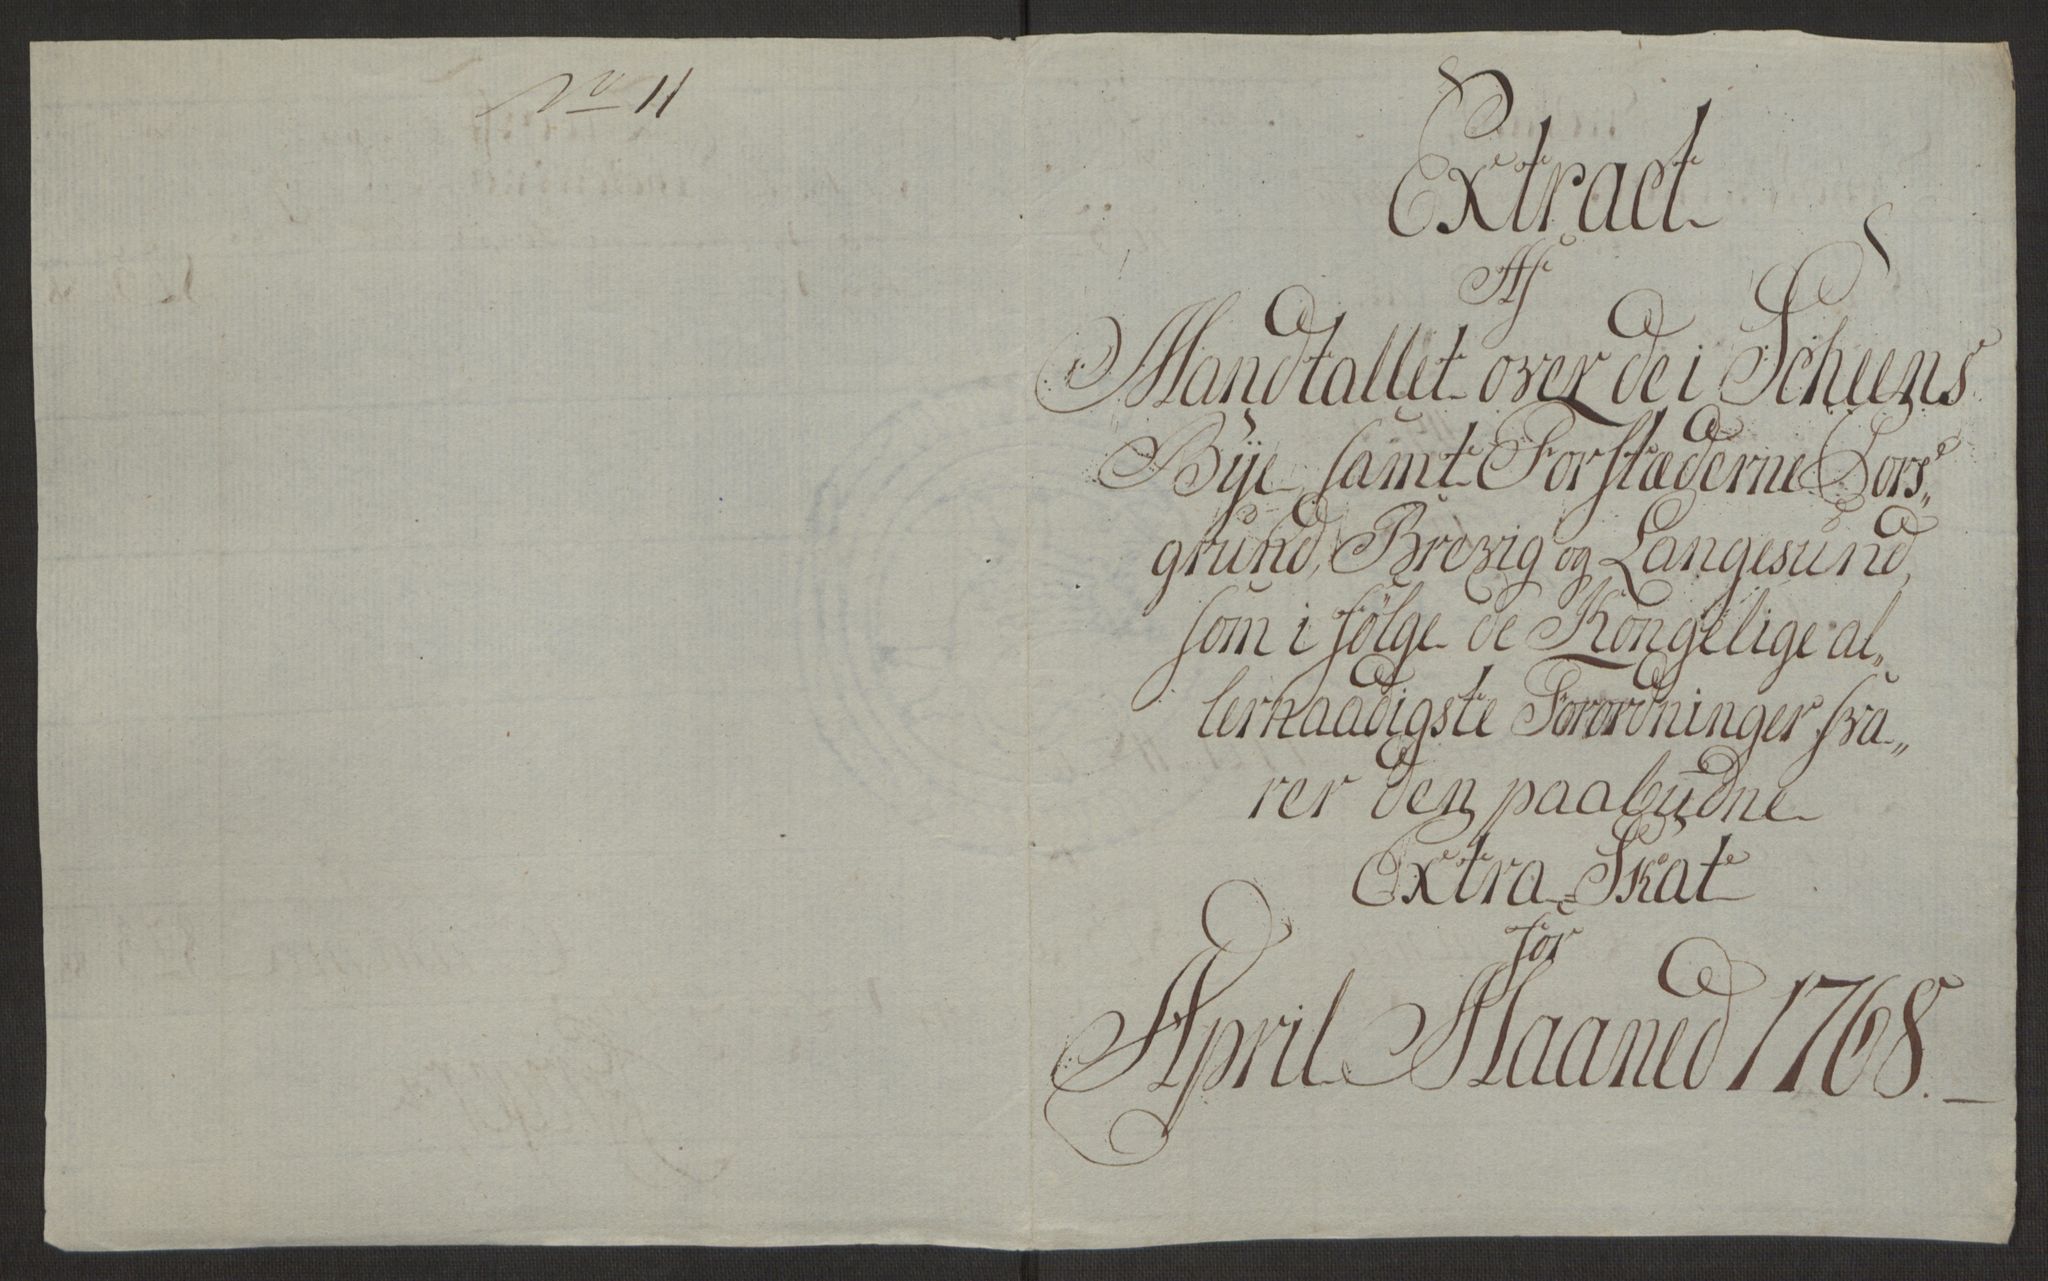 No 11
Extract
Af
Mandtallet over de i Scheens
Bÿe, samt Forstæderne Pors„
grund, Brevig og Langesund,
som i følge de Kongelige al„
lernaadigste Forordninger sva„
rer den paabudne
Extra-Skat
for
April Maaned 1768.